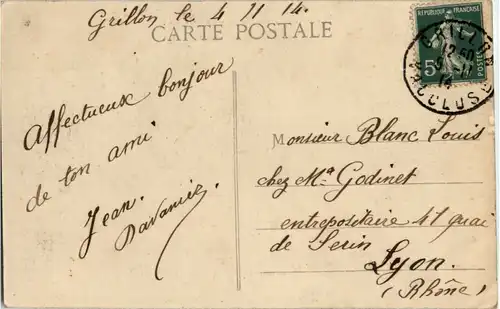 Grillon le 4 11 14.
CARTE POSTALE
RÉPUBLIQUE FRANÇAISE
5
POSTES
GRILLON
12
VAUCLUSE
Affectueux bonjour
de ton ami
Jean.
Monsieur Blanc Louis
chez Mr Godinet
entrepositaire 41 quai
de Serin
Lyon.
(Rhône)